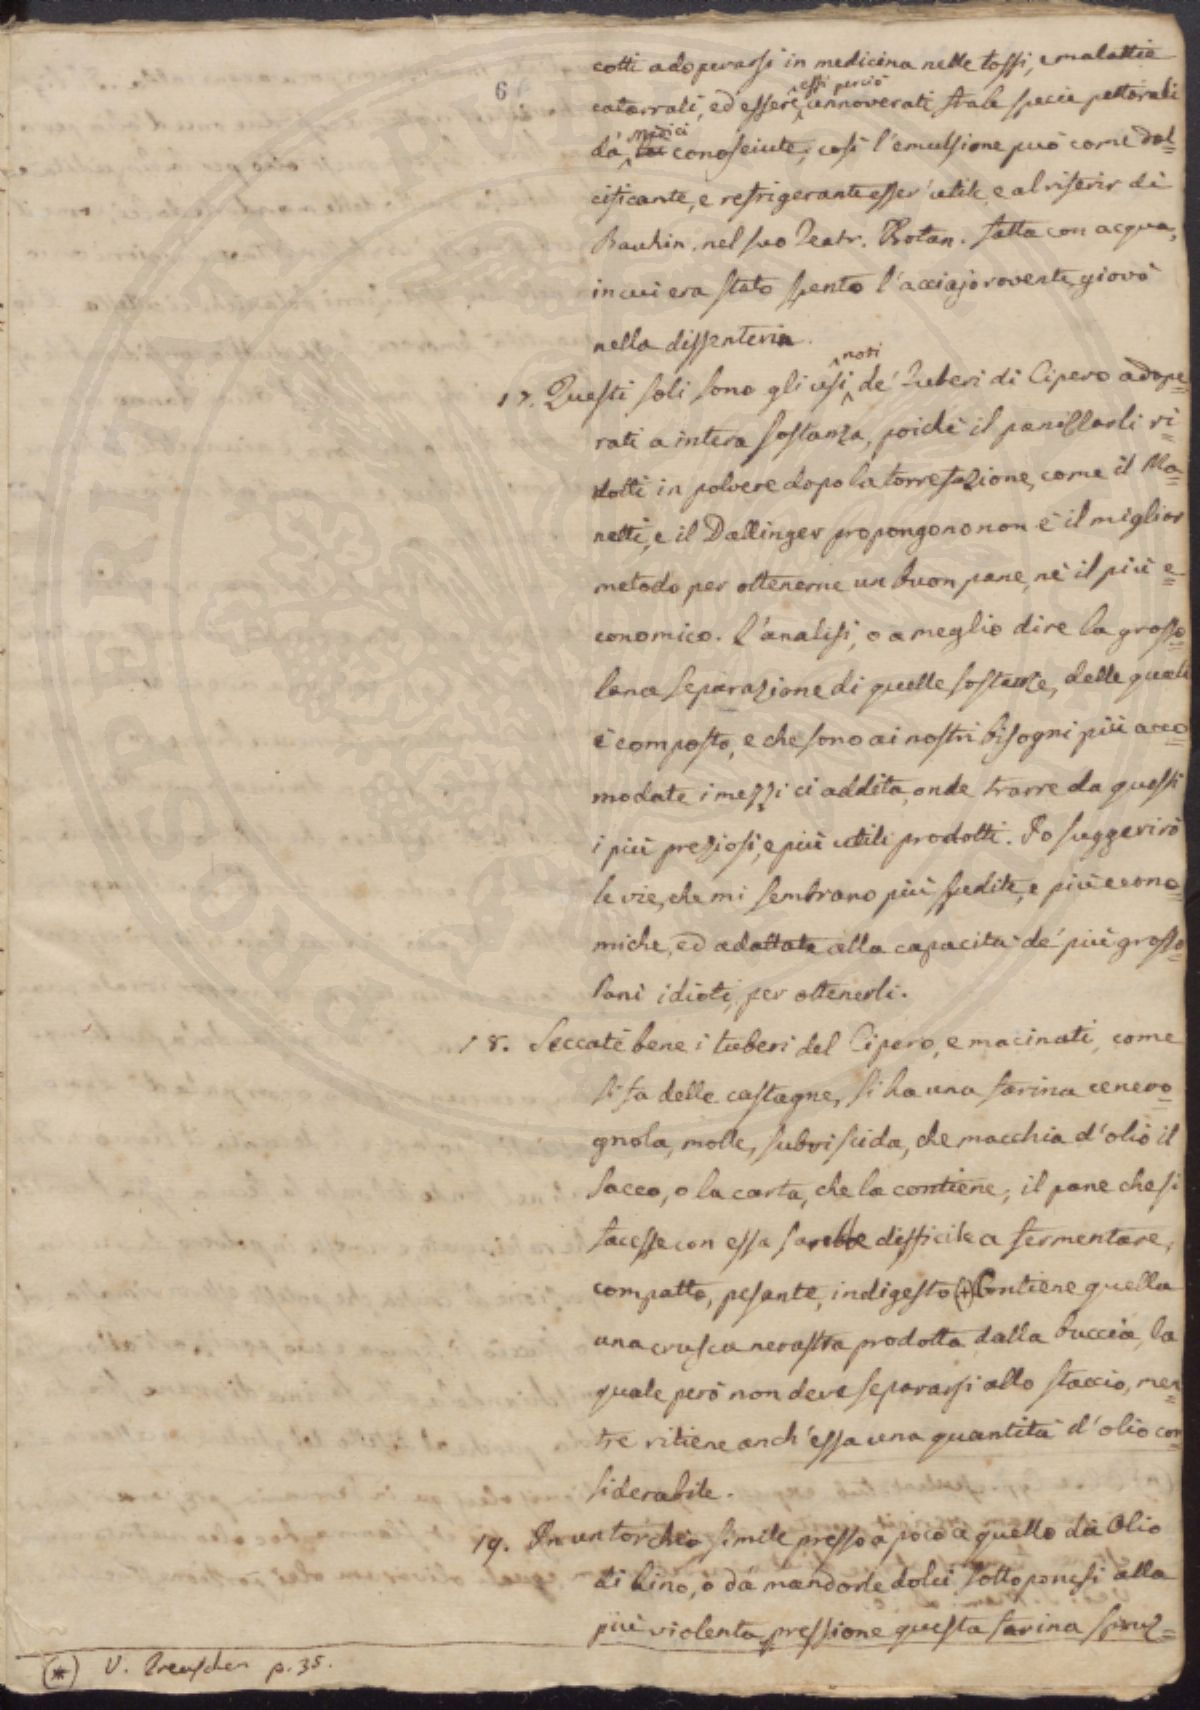 6
cotti adoperarsi in medicina nelle tossi, e malattie
catarrali, ed essere essi perciò annoverati fra le specie pettorali
dà medici conosciute; così l'emulsione può come dol=
cificante, e refrigerante esser utile, e al riferir di
Bauhin. nel suo Teatr. Botan. fatta con acqua,
in cui era stato spento l'acciajo rovente, giovò
nella dissenteria.
17. Questi soli sono gli usi noti de' Tuberi di Cipero adope=
rati a intera sostanza, poichè il panizzarli ri=
dotti in polvere dopo la torrefazione, come il Ma=
netti, e il Dallinger propongono non è il miglior
metodo per ottenerne un buon pane, nè il più e=
conomico. L'analisi, o a meglio dire la grosso=
lana separazione di quelle sostanze, delle quali
è composto, e che sono ai nostri bisogni più acco=
modate i mezzi ci addita, onde trarre da questi
i più preziosi, e più utili prodotti. Io suggerirò
le vie, che mi sembrano più spedite, e più econo=
miche, ed adattate alla capacità de' più grosso=
lani idioti, per ottenerli.
18. Seccati bene i tuberi del Cipero, e macinati, come
si fa delle castagne, si ha una farina cenero=
gnola, molle, subviscida, che macchia d'olio il
sacco, o la carta, che la contiene; il pane che si
facesse con essa sarebbe difficile a fermentare,
compatto, pesante, indigesto (*) Contiene quella
una crusca nerastra prodotta dalla buccia, la
quale però non deve separarsi allo staccio, men=
tre ritiene anch'essa una quantità d'olio con
siderabile.
19. In un torchio simile presso a poco a quello da Olio
di Lino, o dà mandorle dolci sottoponesi alla
più violenta pressione questa farina spruz=
(*) V. p. 35.